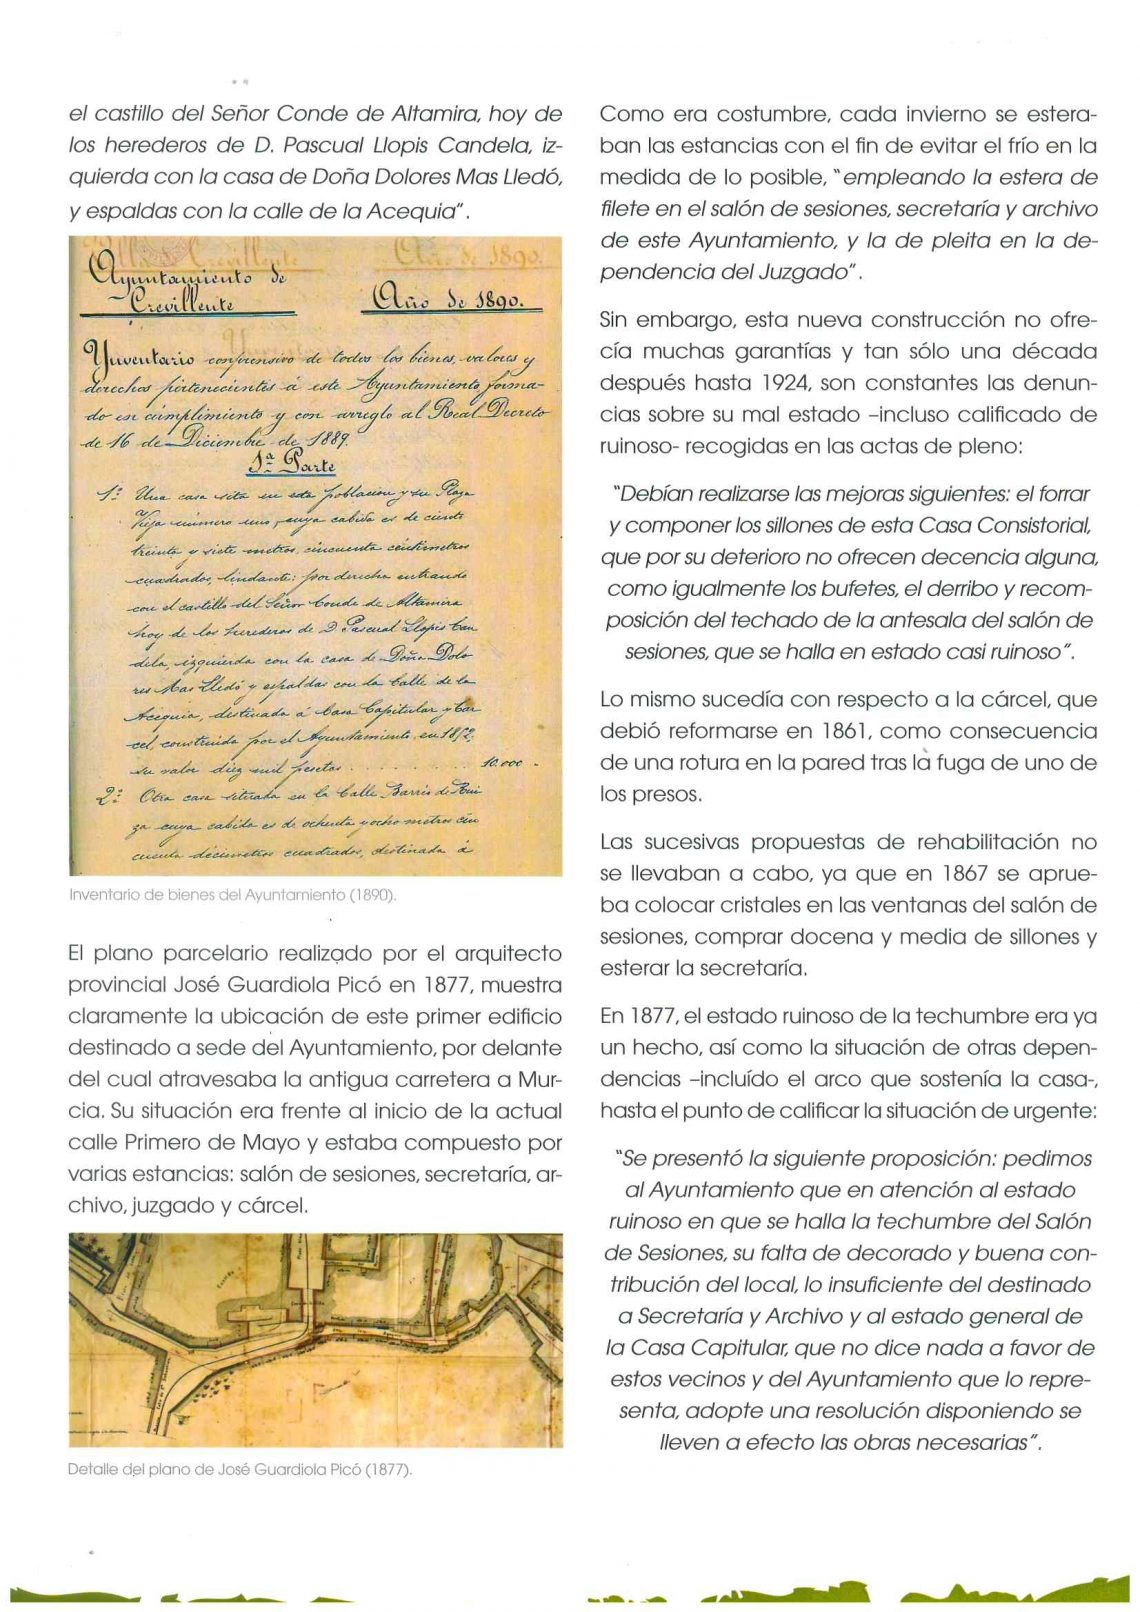 el castillo del Señor Conde de Altamira, hoy de
los herederos de D. Pascual Llopis Candela, iz-
quierda con la casa de Doña Dolores Mas Lledó,
y espaldas con la calle de la Acequia”.
Ayuntamiento de
Crevillente
Año de 1890.
Ynventario conprensivo de todos los bienes, valores y
derechos pertenecientes á este Ayuntamiento, forma-
do en cumplimiento y con arreglo al Real Decreto
de 16 de Diciembre de 1889.
1ª Parte
1º Una casa sita en esta poblacion y su Plaza
Vieja número uno, cuya cabida es de ciento
treinta y siete metros, cincuenta centimetros
cuadrados, lindante: por derecha entrando
con el castillo del Señor Conde de Altamira
hoy de los herederos de D. Pascual Llopis Can
dela, izquierda con la casa de Doña Dolo
res Mas Lledó y espaldas con la Calle de la
Acequia, destinada á Casa Capitular y Car
cel, construida por el Ayuntamiento en 1852,
su valor diez mil pesetas . . . . . . . . 10.000 -
2º Otra casa situada en la Calle Barris de Rui
za cuya cabida es de ochenta y ocho metros cin
cuenta decimetros cuadrados, destinada á
Inventario de bienes del Ayuntamiento (1890).
El plano parcelario realizado por el arquitecto
provincial José Guardiola Picó en 1877, muestra
claramente la ubicación de este primer edificio
destinado a sede del Ayuntamiento, por delante
del cual atravesaba la antigua carretera a Mur-
cia. Su situación era frente al inicio de la actual
calle Primero de Mayo y estaba compuesto por
varias estancias: salón de sesiones, secretaría, ar-
chivo, juzgado y cárcel.
Detalle del plano de José Guardiola Picó (1877).
Como era costumbre, cada invierno se estera-
ban las estancias con el fin de evitar el frío en la
medida de lo posible, “empleando la estera de
filete en el salón de sesiones, secretaría y archivo
de este Ayuntamiento, y la de pleita en la de-
pendencia del Juzgado”.
Sin embargo, esta nueva construcción no ofre-
cía muchas garantías y tan sólo una década
después hasta 1924, son constantes las denun-
cias sobre su mal estado –incluso calificado de
ruinoso- recogidas en las actas de pleno:
“Debían realizarse las mejoras siguientes: el forrar
y componer los sillones de esta Casa Consistorial,
que por su deterioro no ofrecen decencia alguna,
como igualmente los bufetes, el derribo y recom-
posición del techado de la antesala del salón de
sesiones, que se halla en estado casi ruinoso”.
Lo mismo sucedía con respecto a la cárcel, que
debió reformarse en 1861, como consecuencia
de una rotura en la pared tras la fuga de uno de
los presos.
Las sucesivas propuestas de rehabilitación no
se llevaban a cabo, ya que en 1867 se aprue-
ba colocar cristales en las ventanas del salón de
sesiones, comprar docena y media de sillones y
esterar la secretaría.
En 1877, el estado ruinoso de la techumbre era ya
un hecho, así como la situación de otras depen-
dencias –incluído el arco que sostenía la casa-,
hasta el punto de calificar la situación de urgente:
“Se presentó la siguiente proposición: pedimos
al Ayuntamiento que en atención al estado
ruinoso en que se halla la techumbre del Salón
de Sesiones, su falta de decorado y buena con-
tribución del local, lo insuficiente del destinado
a Secretaría y Archivo y al estado general de
la Casa Capitular, que no dice nada a favor de
estos vecinos y del Ayuntamiento que lo repre-
senta, adopte una resolución disponiendo se
lleven a efecto las obras necesarias”.